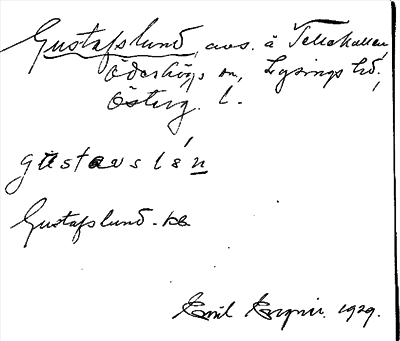 Gustafslund, avs. å Tellekullen,
Ödeshögs sn, Lysings hd,
Österg. l.
gustavslún
Gustafslund -kk
Emil 1929.